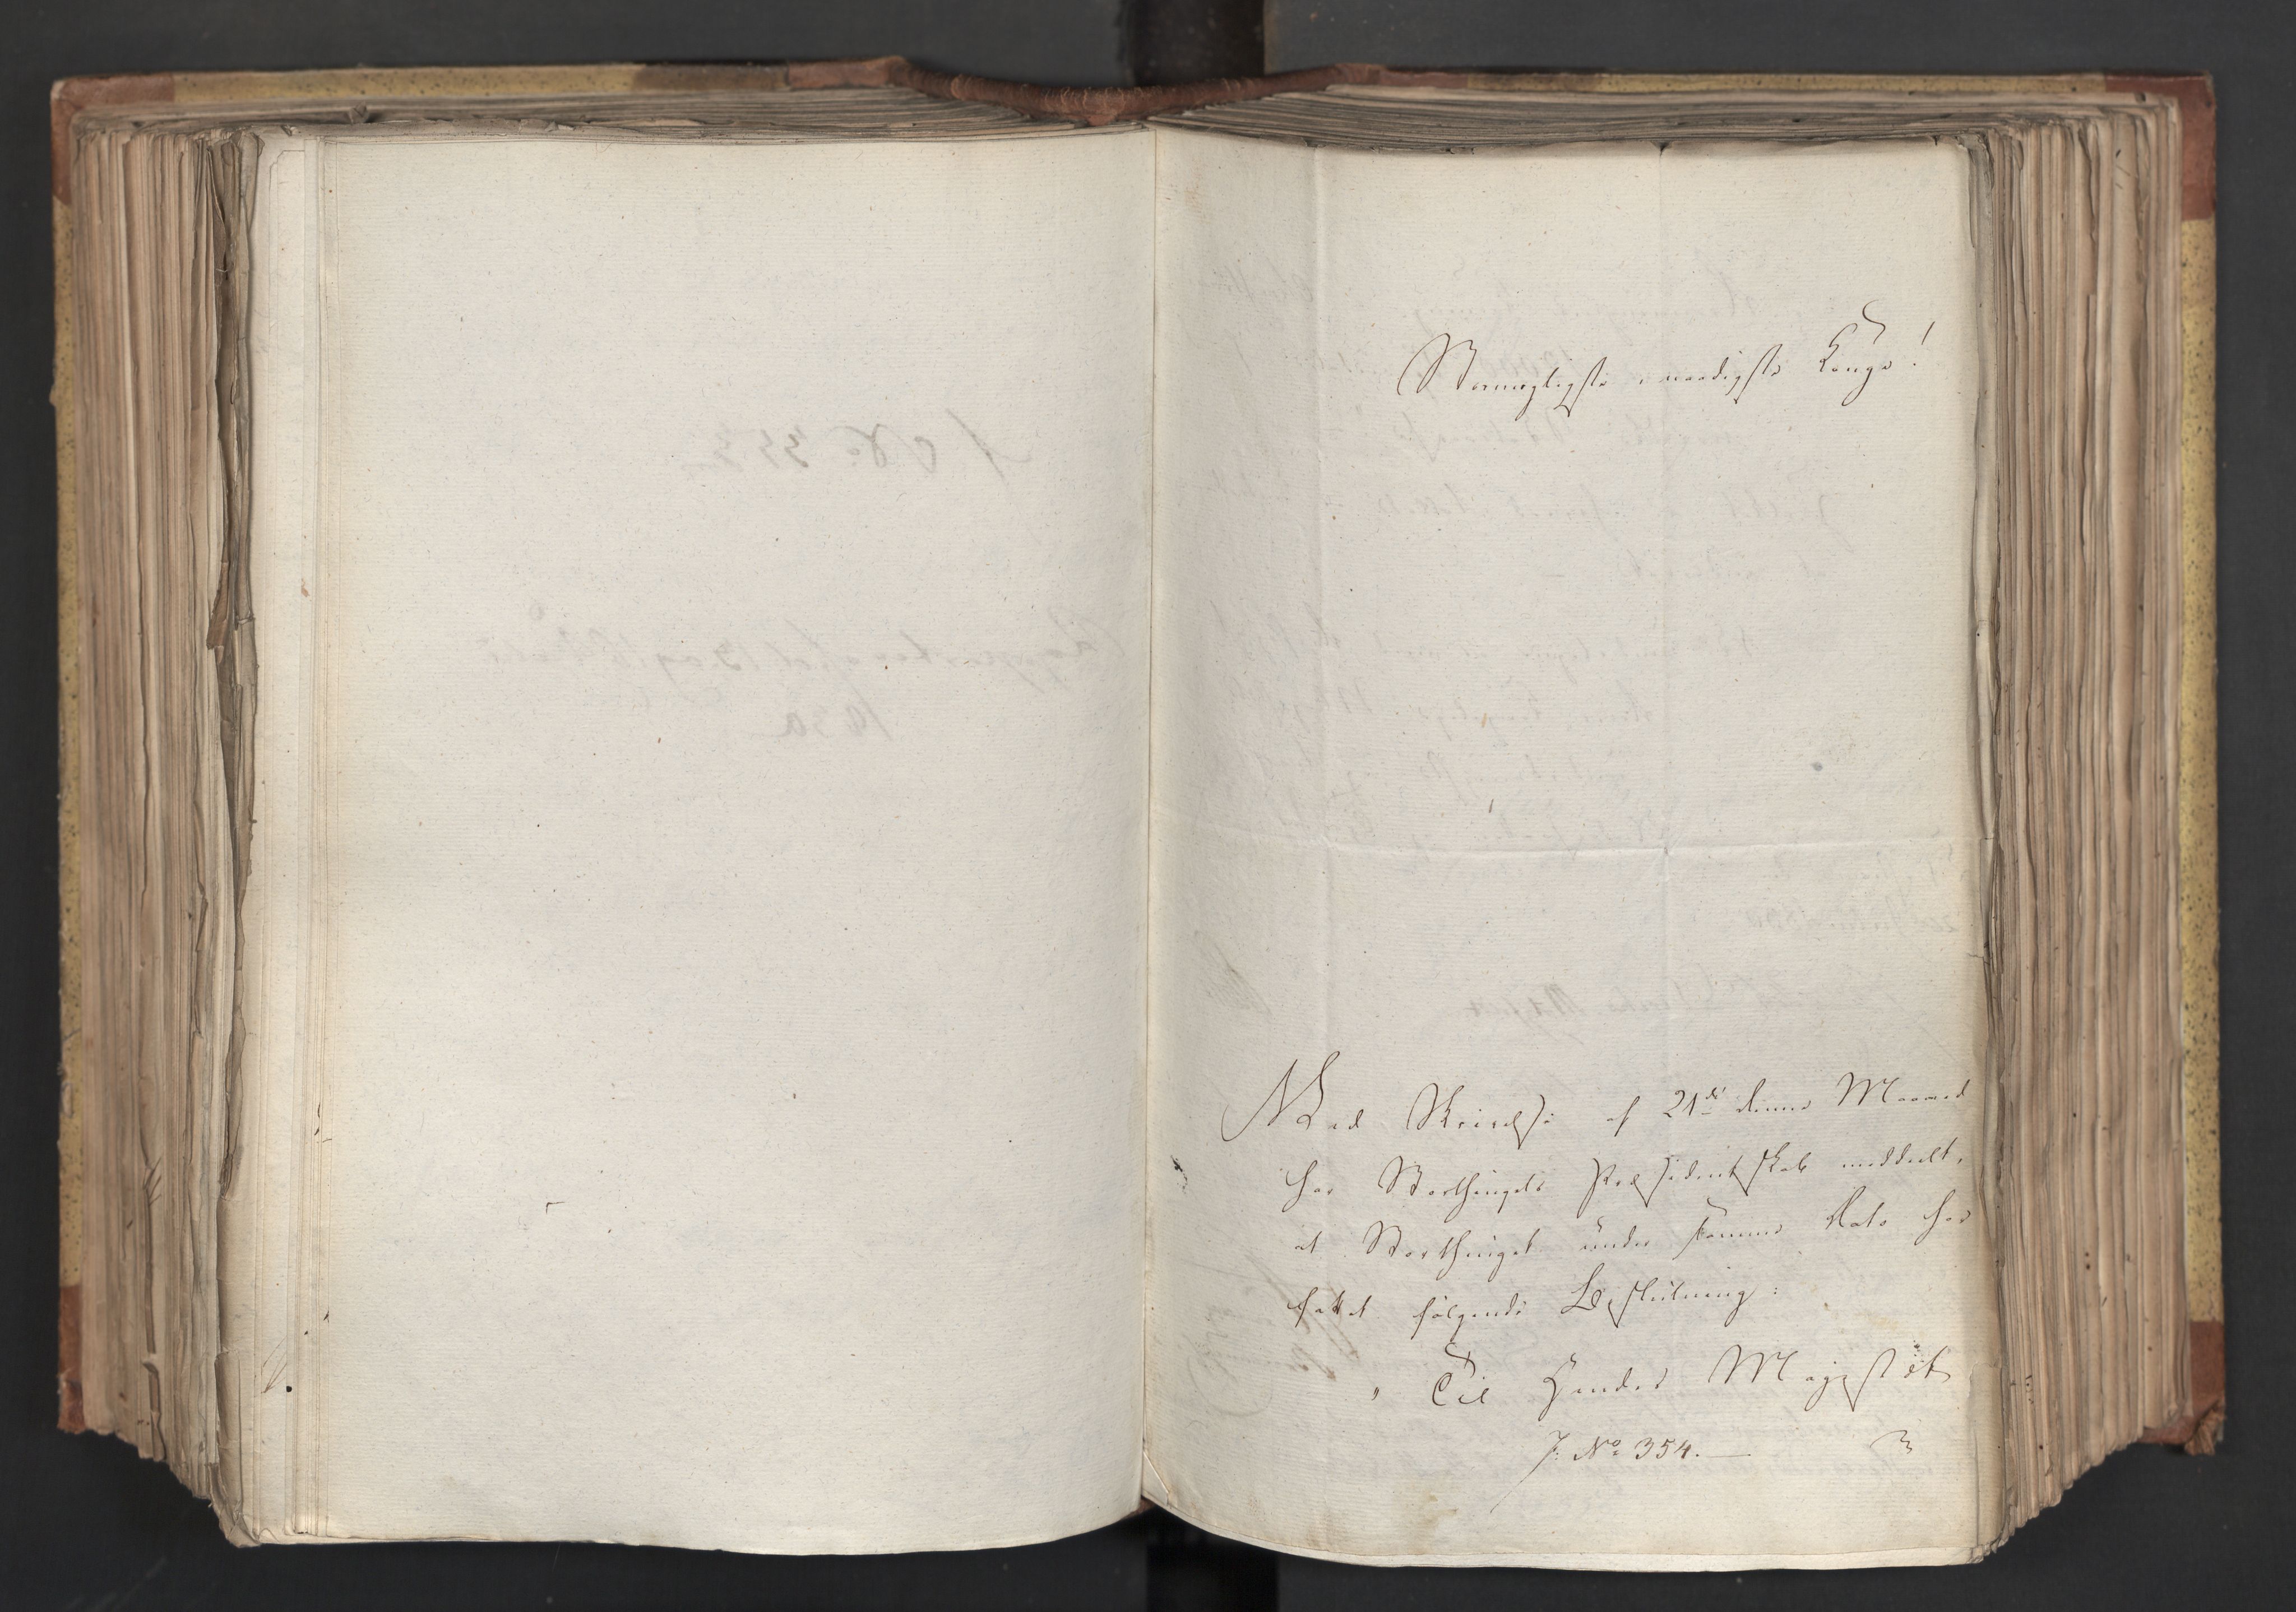 Stormægtigste naadigste Konge!
Med Skrivelse af 21de denne Maaned
har Storthingets Præsidentskab meddeelt,
at Storthinget under samme Dato har
fattet følgende Beslutning:
" Til Hendes Majestæt
J: No 354.—